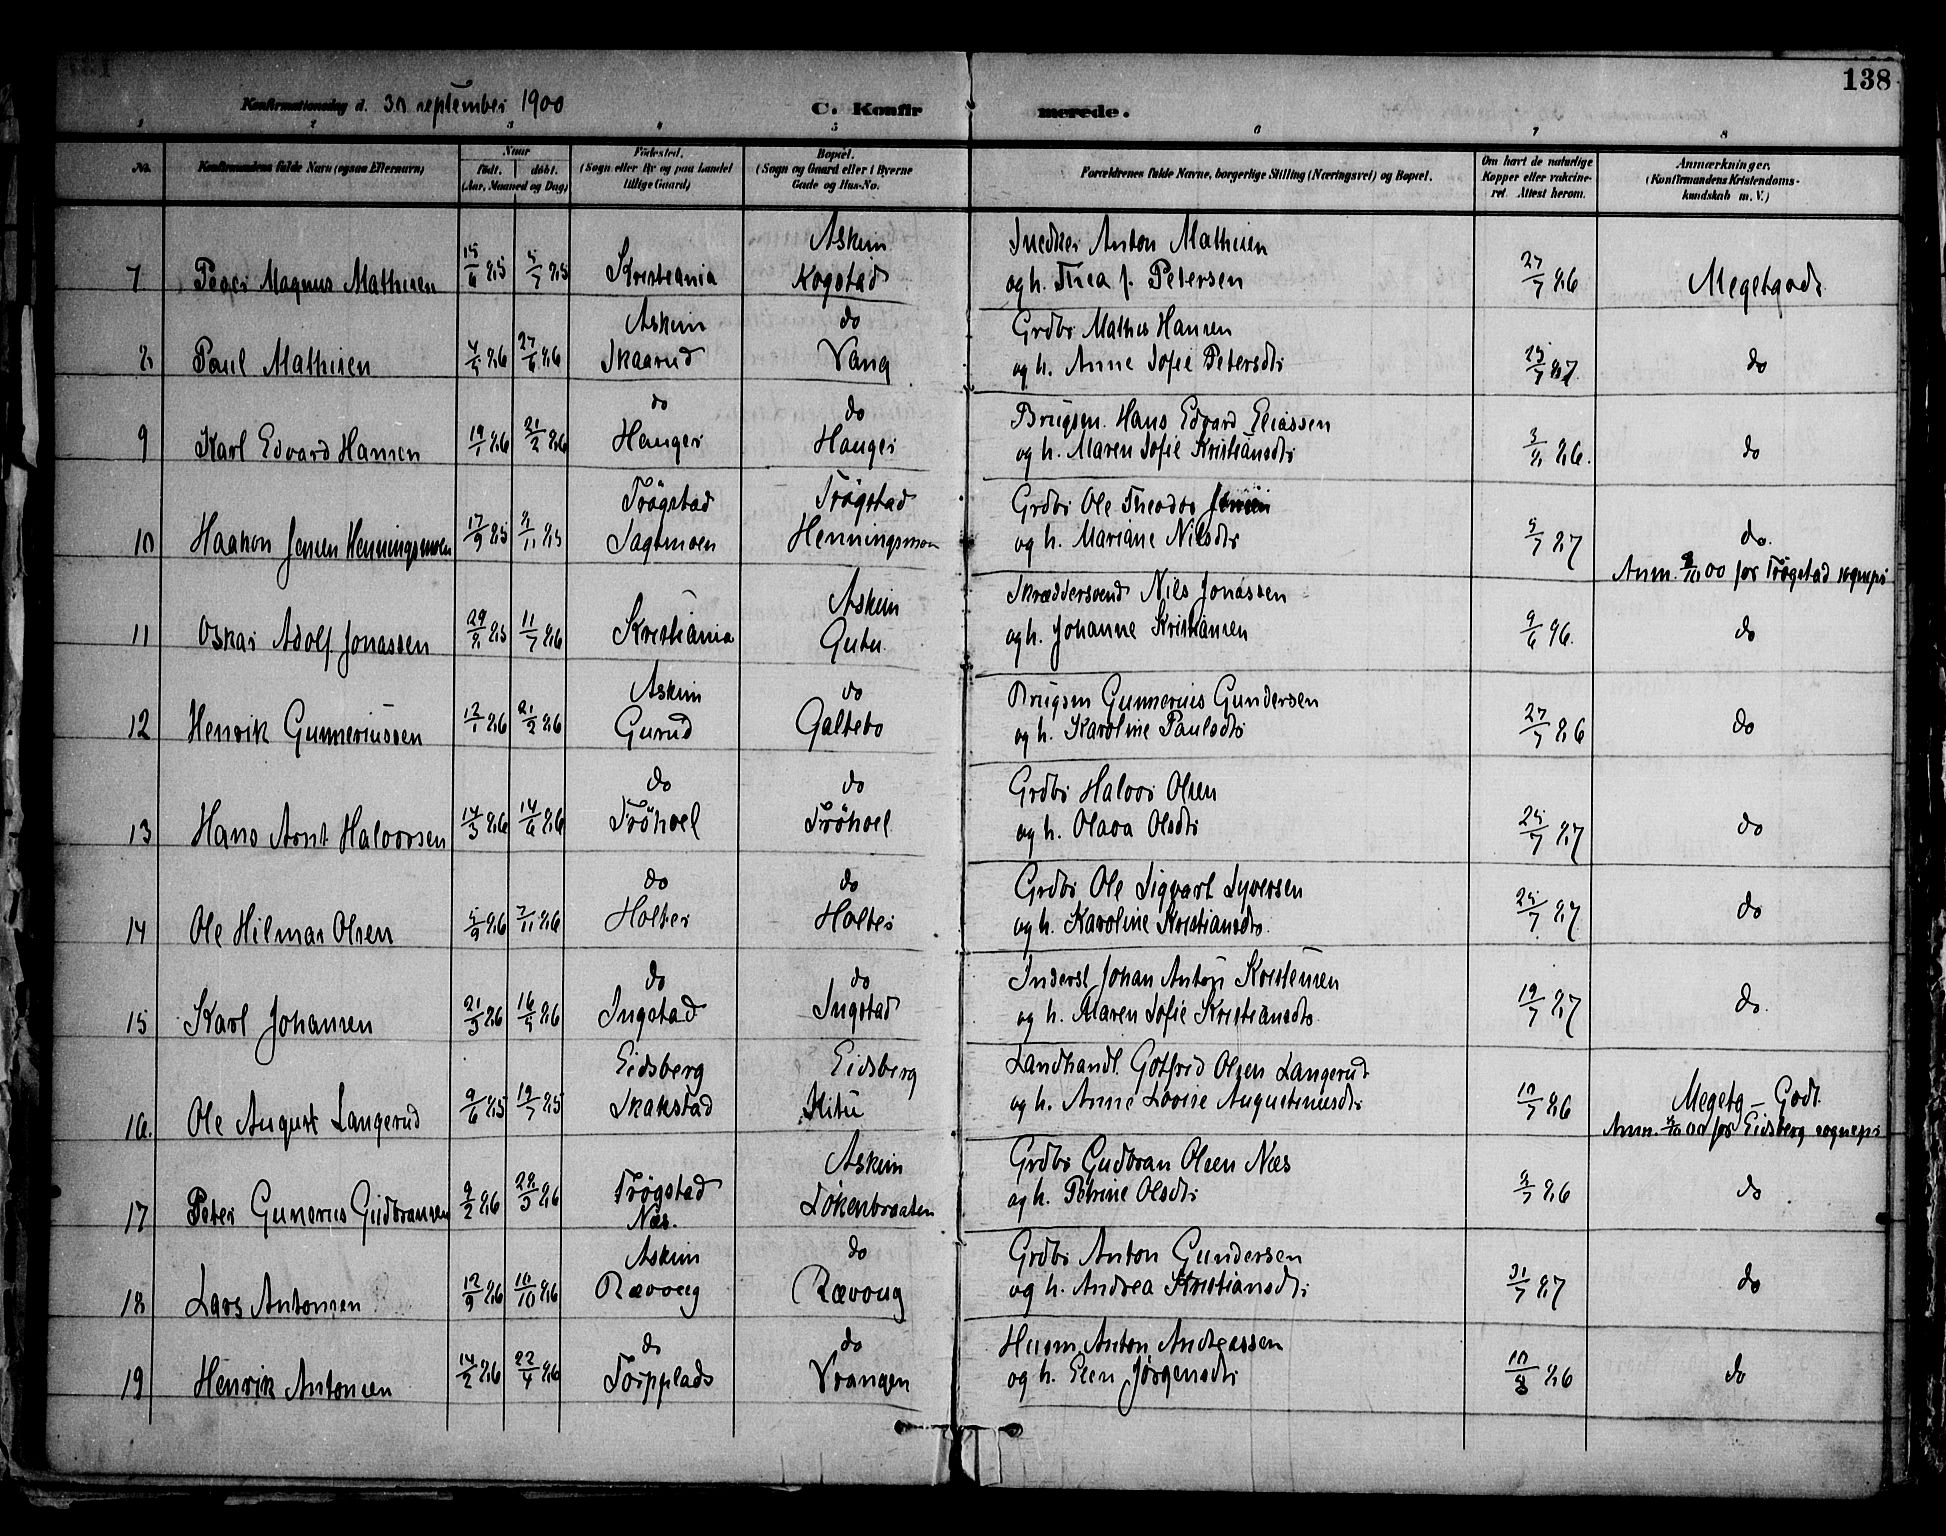 138
Konfirmationsdag d. 30 september 1900 C. Konfirmerede.
1 2 3 4 5 6 7 8
No. Konfirmandens fulde Navn (ogsaa Efternavn) Naar født. døbt. (Aar, Maaned og Dag) Fødested. (Sogn eller By og paa Landet tillige Gaard) Bopæl. (Sogn og Gaard eller i Byerne Gade og Hus-No. Forældrenes fulde Navne, borgerlige Stilling (Næringsvei) og Bopæl. Om havt de naturlige Kopper eller vakcineret. Attest herom. Anmærkninger. (Konfirmandens Kristendomskundskab m. V.)
Askim Snedker Anton Mathisen
7 Peder Magnus Mathisen 15/4 85 5/7 85 Kristiania Kogstad og h. Thea f. Petersen 27/7 86 Megetgodt
Askim do Grdbr Mathis Hansen
8 Paul Mathisen 4/5 86 27/6 86 Skaarud Vang og h. Anne Sofie Petersdtr 25/7 87 do
do do Brugsm. Hans Edvard Eliassen
9 Karl Edvard Hansen 19/1 86 21/2 86 Hauger Hauger og h. Maren Sofie Kristiansdtr 3/8 86. do
Trøgstad Trøgstad Grdbr Ole Theodor Jensen
10 Haakon Jensen Henningsmoen 17/9 85 8/11 85 Sagtmoen Henningsmoen og h. Mariane Nilsdtr 5/7 87 do.
Anm. 8/10 00 for Trøgstad sognepr
Askim Skræddersvend Nils Jonassen
11 Oskar Adolf Jonassen 29/8 85 11/7 86 Kristiania Gutu og h. Johanne Kristiansen 9/6 96. do
Askim do Brugsm Gunnerius Gundersen
12 Henrik Gunneriussen 12/1 86 21/2 86 Gurud Galtebo og h. Karoline Paulsdtr 27/7 86 do
do do Grdbr Halvor Olsen
13 Hans Arnt Halvorsen 14/3 86 14/6 86 Trøhvel Trøhvel og h. Olava Olsdtr 25/7 87 do
do do Grdbr Ole Sigvart Syversen
14 Ole Hilmar Olsen 5/9 86 7/11 86 Holter Holter og h. Karoline Kristiansdtr. 25/7 87 do
do do Inderst Johan Anton Kristensen
15 Karl Johansen 21/3 86 16/5 86 Ingstad Ingstad og h. Maren Sofie Kristiansdtr. 19/7 87 do
Eidsberg Eidsberg Landhandl. Gotfred Olsen Langerud
16. Ole August Langerud 9/6 85 19/7 85 Skakstad Hitu og h. Anne Lovise Augustinusdtr 12/7 86 Megetg – Godt.
Anm. 8/10 00 for Eidsberg sognepr
Askim Grdbr Gudbran Olsen Næs
17 Peter Gunerius Gudbransen 9/2 86 28/3 86 Trøgstad Løkenbraaten og h. Petrine Olsdtr 8/7 86 do
Næs.
Askim do Grdbr Anton Gundersen
18 Lars Antonsen 12/9 86 10/10 86 Rævoug Rævoug og h. Andrea Kristiansdtr 31/7 87 do
do do Husm. Anton Andreassen
19 Henrik Antonsen 14/2 86 22/4 86 Torpplads Vrangen og h. Elen Jørgensdtr 10/8 86 do